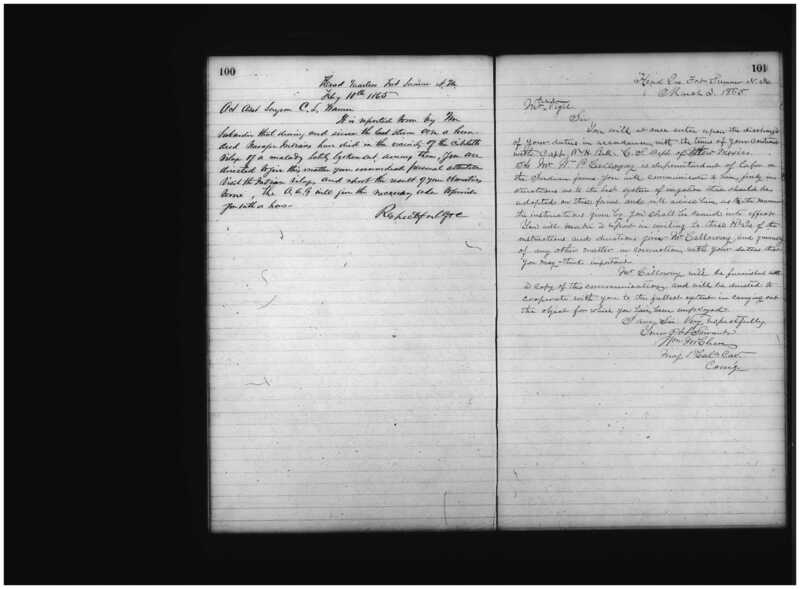 100
Head Quarters Fort Sumner N.M.
Feby 18th 1865
Act Asst Surgeon C. L. Warner
It is reported to me by Mr
that during and since the last storm over a hun-
dred Navajo Indians have died in the vicinity of the
Village of a malady among them. You are
directed to give this matter your immediate personal attention
Visit the Indian Village and report the result of your
to me, The A.Q.M will give the necessary order to provide
you with a horse
Respectfully &c
101
Head Qrs. Fort Sumner N. M.
March 3. 1865
Mr Vigil
Sir
You will at once enter upon the discharge
of your duties in accordance with the terms of your contract
with Capt. W. H. Bell. C. S. Dept of New Mexico.
As Mr. W. P. Calloway is Superintendent of Labor on
the Indian farms, you will communicate to him, fully, in-
structions as to the best system of irrigation that should be
adopted on these farms and will advise him, as to the manner
the instructions given by you shall be carried into effect.
You will make a report in writing to these Hd Qrs of the
instructions and directions given Mr Calloway, and generally
of any other matter in connection with your duties that
you may think important.
Mr Calloway will be furnished with
a copy of this communication, and will be directed to
cooperate with you to the fullest extent in carrying out
the object for which you have been employed.
I am, Sir Very respectfully
Your Obt Servant
Wm McCleave
Maj 1st Cal Cav
Comdg